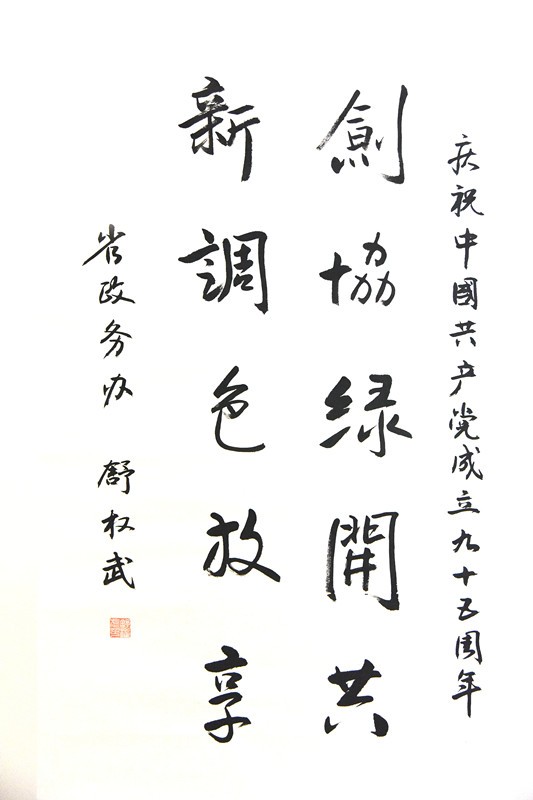 庆祝中國共产党成立九十五周年
創新
協調
绿色
開放
共享
省政务办 舒权武